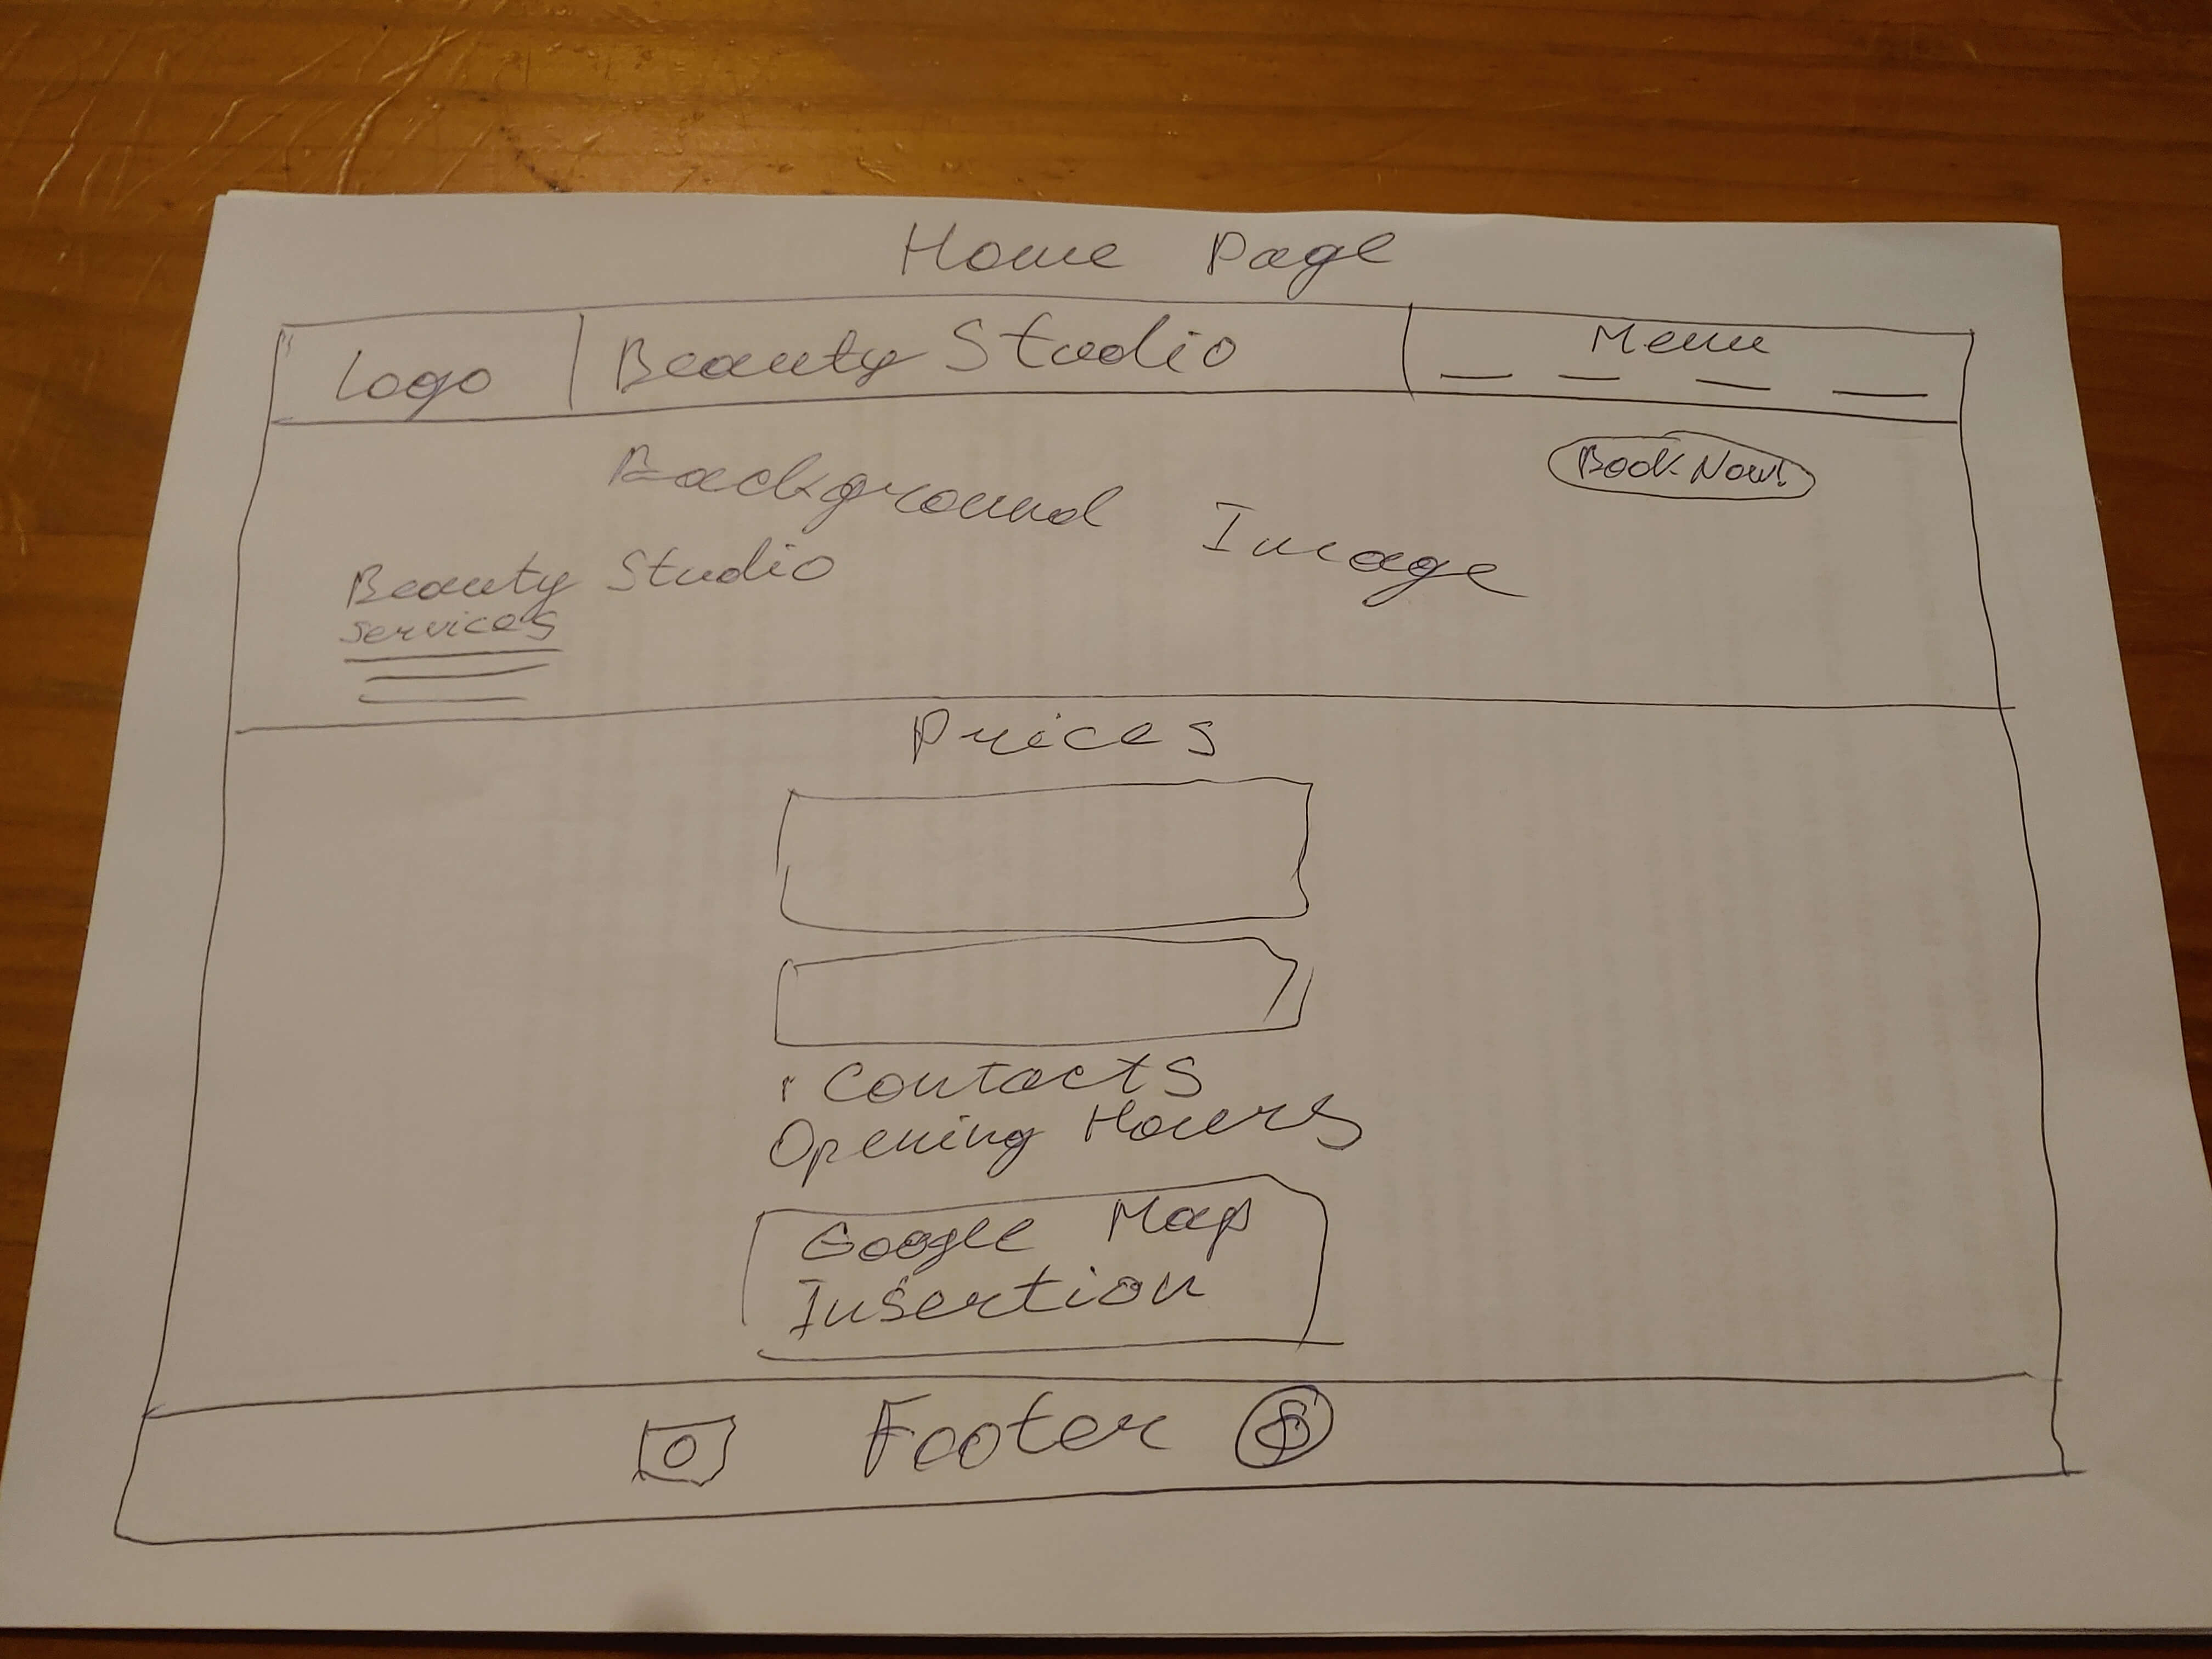 Home Page
Logo
Beauty Studio
Menu
Book Now!
Background Image
Beauty Studio
Services
Prices
Contacts
Opening Hours
Google Map
Insertion
Footer